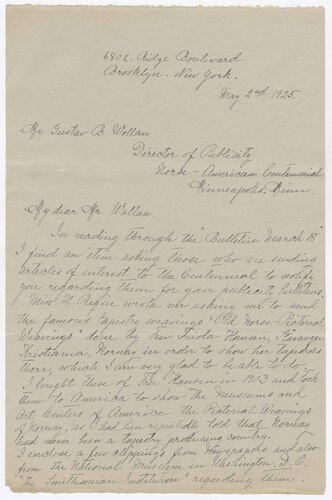 6802. Ridge Boulevard.
Brooklyn. New York.
May 2nd 1925.
Mr Gustav B. Wollan
Director of Publicity
Norse-American Centennial
Minneapolis. Minn.
My dear Mr Wollan.
In reading through the "Bulletin March 18"
I find an item asking those who are sending
articles of interest to the Centennial to notify
you regarding them for your publicity bulletins.
Miss H. wrote me asking me to send
the famous tapestry weavings "Old Norse Pictorial
Weavings" done by Fru Frida Hansen, Stavanger
Kristiania, Norway in order to show her tapestries
there, which I am very glad to be able to do.
I bought them of Fru Hansen in 1903 and took
them to America to show the Museums and
Art Centers of America the Pictorial Weavings
of Norway, as I had been repeatedly told that Norway
had never been a tapestry producing country.
I enclose a few clippings from Newspapers and also
from The National Museum in Washington, D.C.
"The Smithsonian Institution" regarding them.